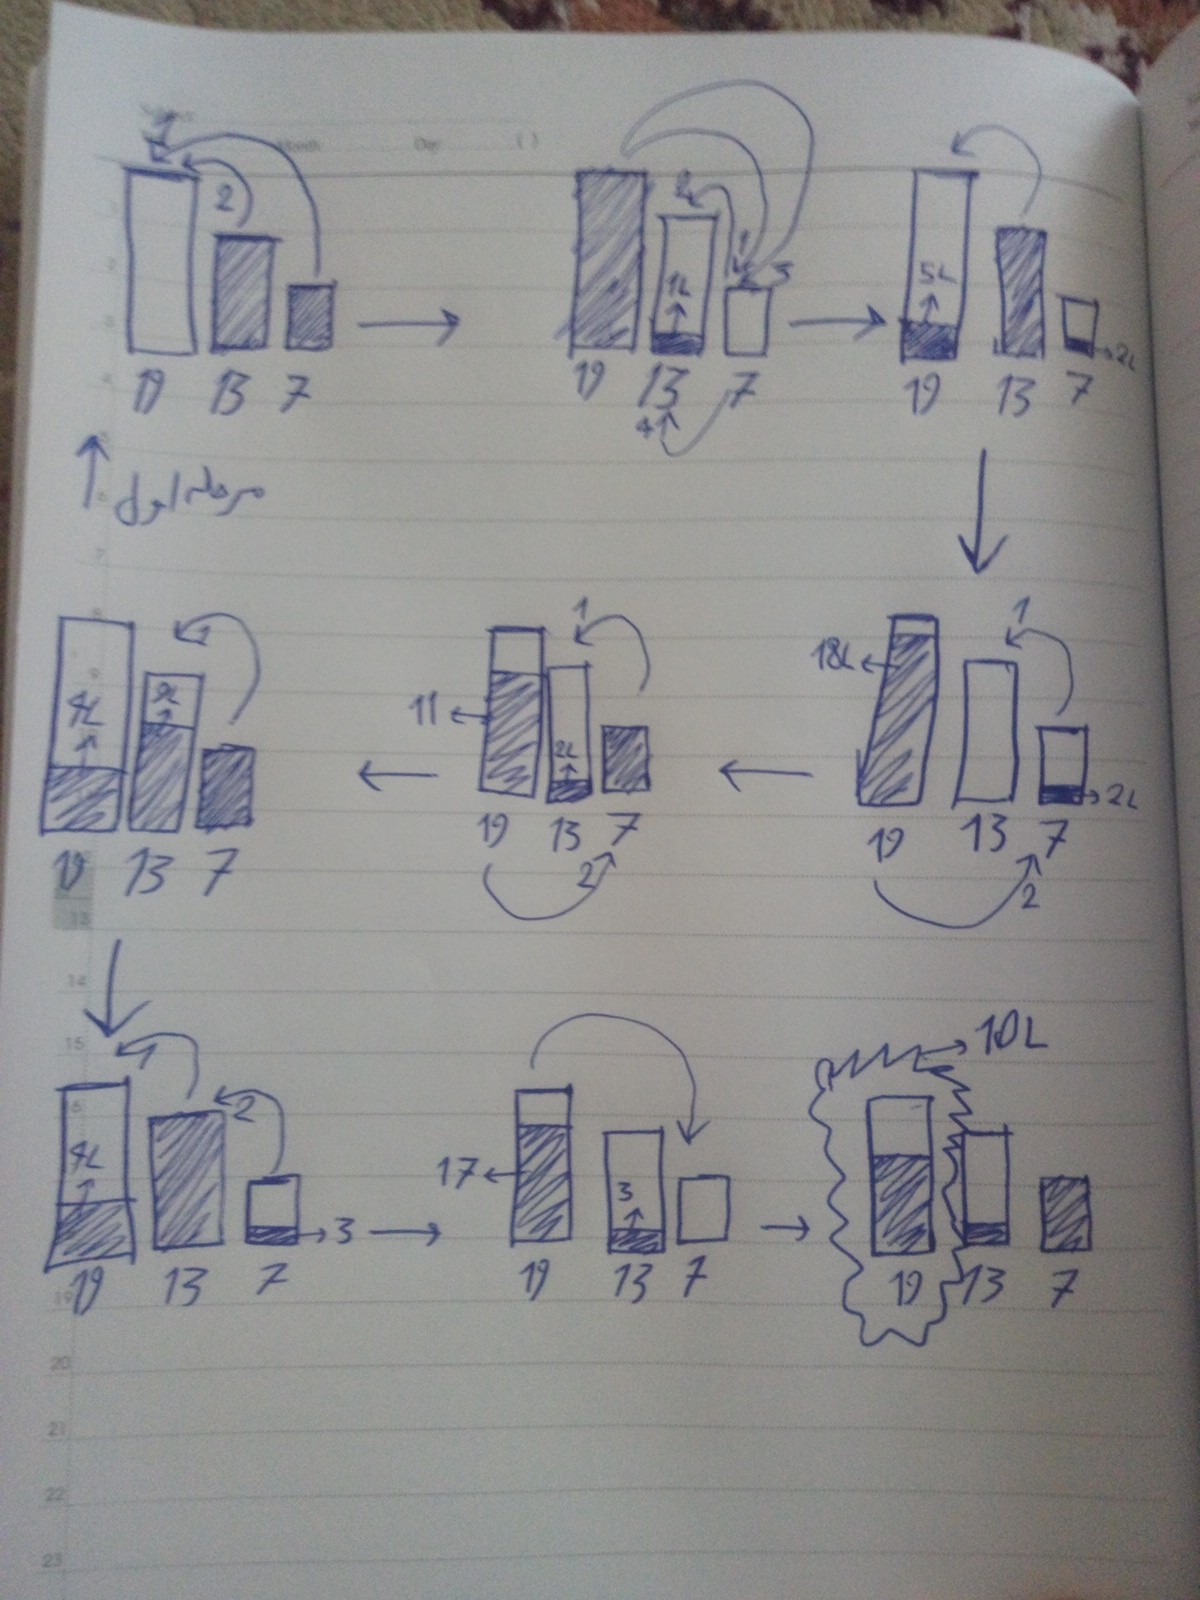 Month Day ( )
1
2
19 13 7
2
1
3
1L
19 13 7
4
5L
2L
19 13 7
مرحله اول
1
4L
9L
19 13 7
1
11
2L
19 13 7
2
1
18L
2L
19 13 7
2
1
2
4L
3
19 13 7
17
3
19 13 7
10L
19 13 7
14
15
19
20
21
22
23